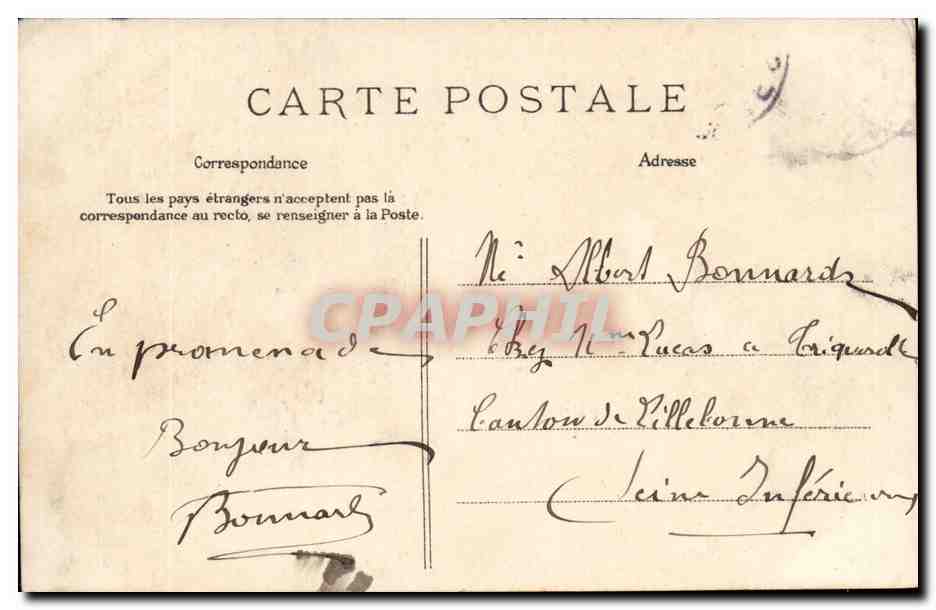 CARTE POSTALE
Correspondance
Tous les pays étrangers n'acceptent pas la
correspondance au recto, se renseigner à la Poste.
En promenade
Bonjour
Bonnard
Adresse
Albert Bonnard
Chez Lucas a
Canton de Lillebonne
Seine Inférieure
CPAPHIL